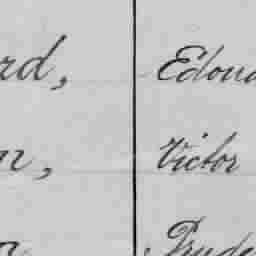 rd, Edoua
n, Victor
n Prude